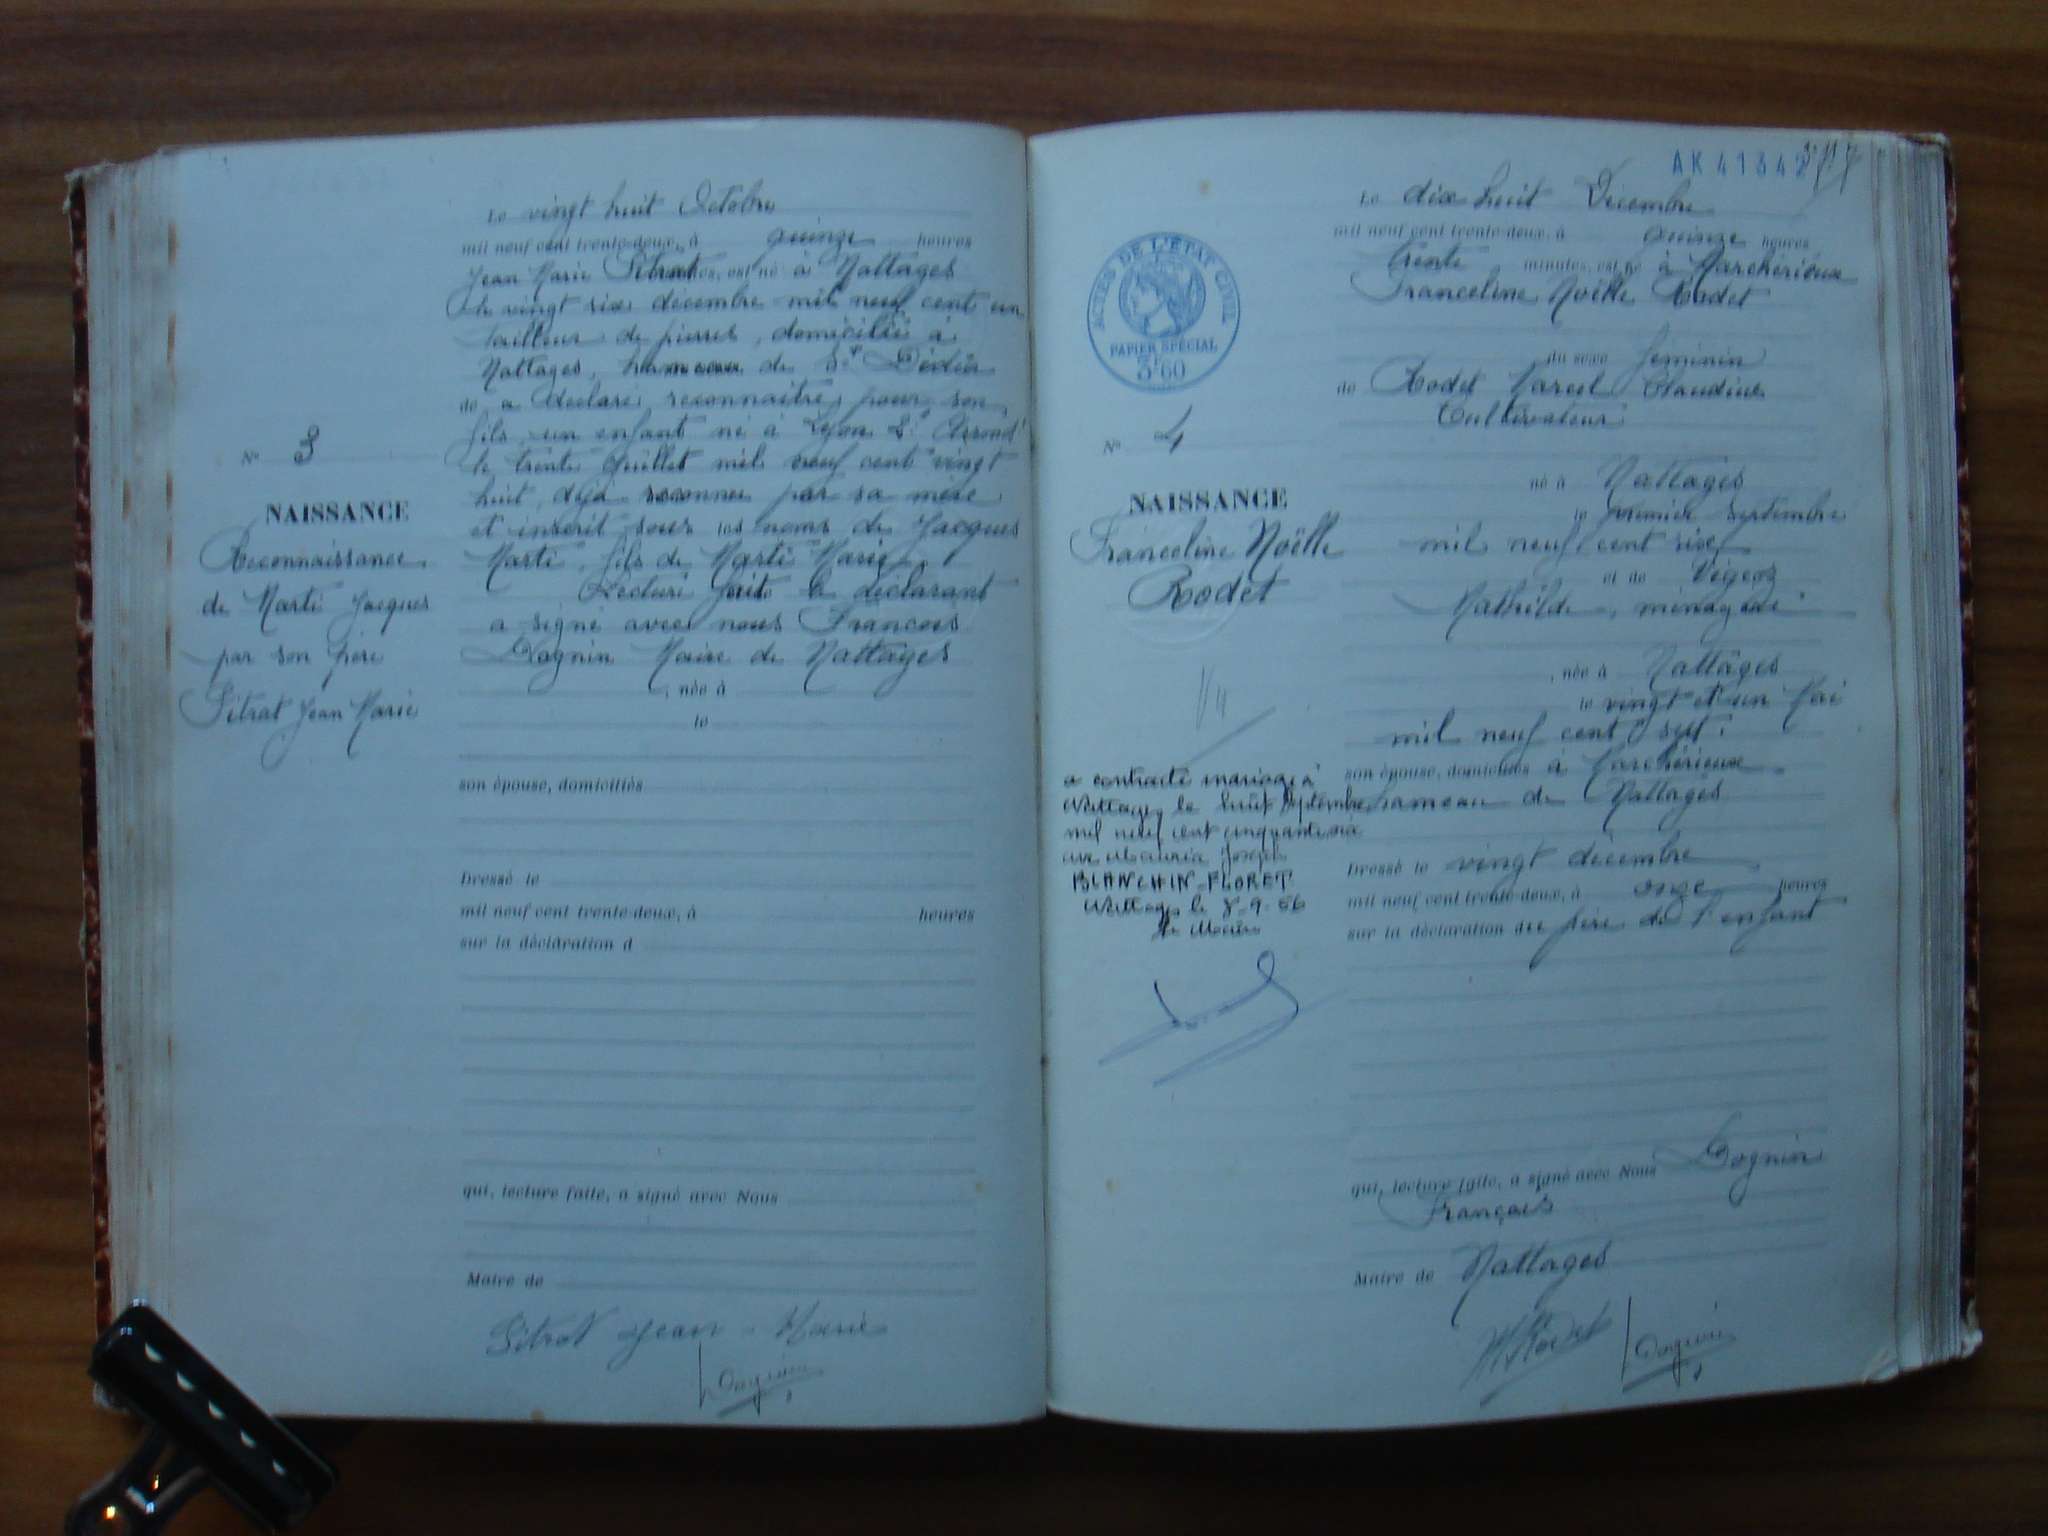 Le vingt huit Octobre
mil neuf cent trente-deux, à quinze heures
Jean Marie Pitrat est né à Nattages
le vingt six décembre mil neuf cent un
tailleur de pierres, domicilié à
Nattages, hameau de St Dédier
de a déclaré reconnaître pour son
fils un enfant né à Lyon 2e Arrondt
le trente Juillet mil neuf cent vingt
huit, déjà reconnu par sa mère
et inscrit sous les noms de Jacques
Marti, fils de Marti Marie
Lecture faite le déclarant
a signé avec nous François
Dognin Maire de Nattages
, née à
le
son épouse, domiciliés
Dressé le
mil neuf cent trente-deux, à heures
sur la déclaration d
qui, lecture faite, a signé avec Nous
Maire de
Pitrat Jean-Marie
Dognin
N° 3
NAISSANCE
Reconnaissance
de Marti Jacques
par son père
Pitrat Jean Marie
AK 41342
Le dix huit Décembre
mil neuf cent trente-deux, à quinze heures
trente minutes, est né à Marchérieux
Franceline Noëlle Rodet
du sexe féminin
de Rodet Marcel Claudius
Cultivateur
né à Nattages
le premier septembre
mil neuf cent six
et de
Mathilde, ménagère
, née à Nattages
le vingt et un Mai
mil neuf cent sept.
son épouse, domiciliés à Marchérieux
hameau de Nattages
Dressé le vingt décembre
mil neuf cent trente-deux, à onze heures
sur la déclaration du père de l'enfant
qui, lecture faite, a signé avec Nous Dognin
François
Maire de Nattages
M Rodet Dognin
ACTES DE L'ÉTAT CIVIL
PAPIER SPÉCIAL
3F60
N° 4
NAISSANCE
Franceline Noëlle
Rodet
Vu
a contracté mariage à
Nattages le huit septembre
mil neuf cent cinquante six
avec Maurice Joseph
BLANCHIN-FLORET
Nattages le 8-9-56
Le Maire